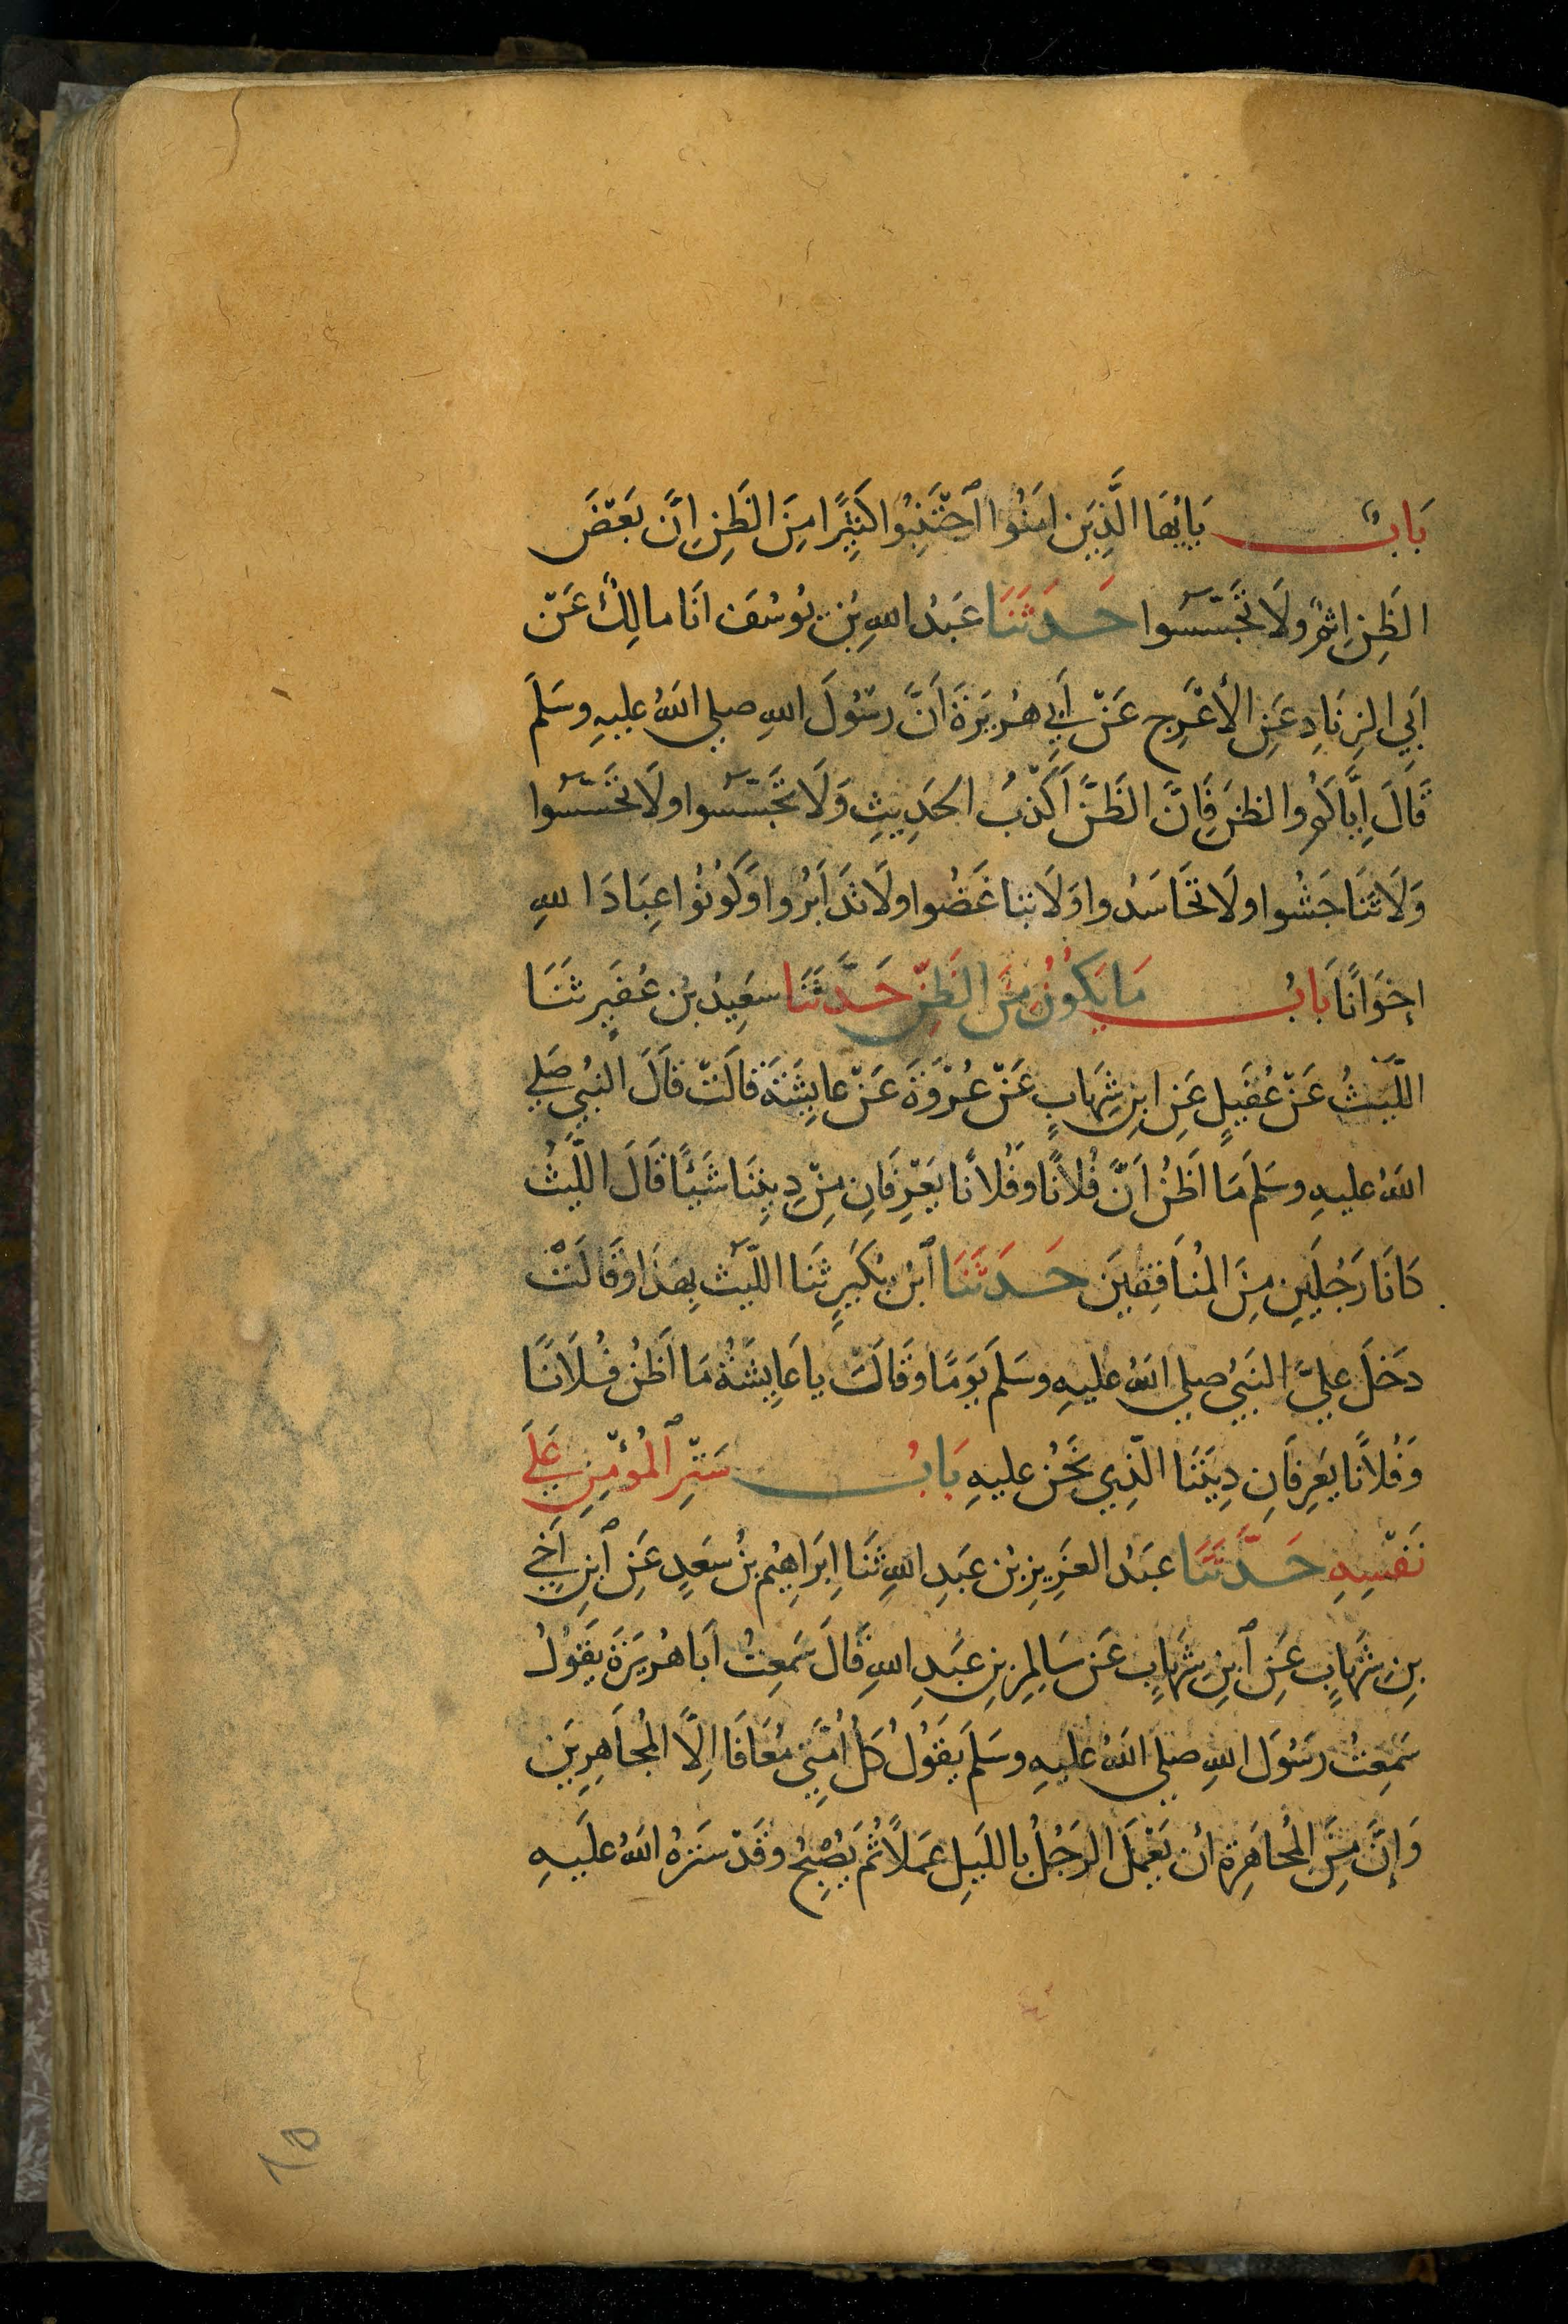 بَابٌ يَايُّهَا الَّذِيَن امَنُوا ٱجْتَنِبُوا كَثِيرًا مِنَ الظَنِ اِنَّ بَعْضَ
الظَنِ اِثْمٌ وَلَا تَجَسَّسُوا حَدَثَنَا عَبْدُ اللهِ بْنِ يُوسُفَ انَا مالِكٌ عَنْ
اَبِي الزِنَادِ عَنِ الأَعْرَجِ عَنْ اَبِي هُرَيرَةَ اَنَّ رَسُولَ اللهِ صلي اللهُ عليهِ وسَلَمَ
قَالَ اِيَّاكُمْ والظنَ فَاِنَّ الظَنَّ اَكْذَبُ الحَدِيثِ وَلَا تَجَسَّسُوا ولَا تَحَسَّسُوا
وَلَا تَنَاجَشُوا ولَا تحَاسَدُوا وَلَا تبَاغَضُوا ولَا تَدَابَرُوا وَكُونُوا عِبَادَ اللهِ
إخوَانًا بَابُ مَا يَكُونُ مِنَ الظَنِّ حَدَّثَنَا سعَيدُ بْن عُفَيرٍ ثَنَا
اللَّيثُ عَنْ عُقَيلٍ عَنِ ابنِ شِهَابٍ عَنْ عُرْوَةَ عَنْ عايِشَةَ قالَتْ قَالَ النبُي صَلي
اللهُ عليهِ وسَلَمَ مَا اظَنُ اَنَّ فُلانًا وفُلانًا يَعْرِفَانِ مِنْ دِينِنَا شَيْئًا قَالَ اللَّيْثُ
كانَا رَجُلَينِ مِنَ المُنَافِقِينَ حَدَثَنَا ٱبْن بُكَيرٍ ثَنَا اللَّيث بِهذَا وقَالَتْ
دخَلَ عليَّ النَبيُ صلي اللهُ عليهِ وسَلَمَ يَوَمًا وقَالتْ يا عَايِشَةُ مَا اَظُن فُلَانًا
وَفُلانًا يَعرِفَانِ دِينَنَا الَّذِي نَحْن عليهِ بَابُ سَتْرِ ٱلمُؤْمِنِ عَلَي
نَفْسِهِ حَدَّثَنَا عبَدُ العَزِيزِ بْن عَبَدِ اللهِ ثَنَا اِبرَاهِيُم بْنُ سعَدٍ عَنِ ٱبنِ اَخِي
بنِ شهَابٍ عَنِ ٱبْنِ شِهَابٍ عَن سَالِمِ بنِ عَبَدِ اللهِ قَالَ سَمِعتُ اَبا هُرَيرَةَ يقَوُلُ
سَمِعتُ رسَوُلَ اللهِ صلي اللهُ عليهِ وسَلَمَ يقَوُلُ كلُ اُمَّتِي مُعَافَا اِلَّا المُجَاهِرِينَ
وَإنَّ مِنَ المُجاهَرِة انْ يَعْمَلَ الرَجُلُ بِالليَلِ عَمَلاً ثُم يَصُبِحُ وقَدْ سَتَرهُ اللهُ علَيهِ